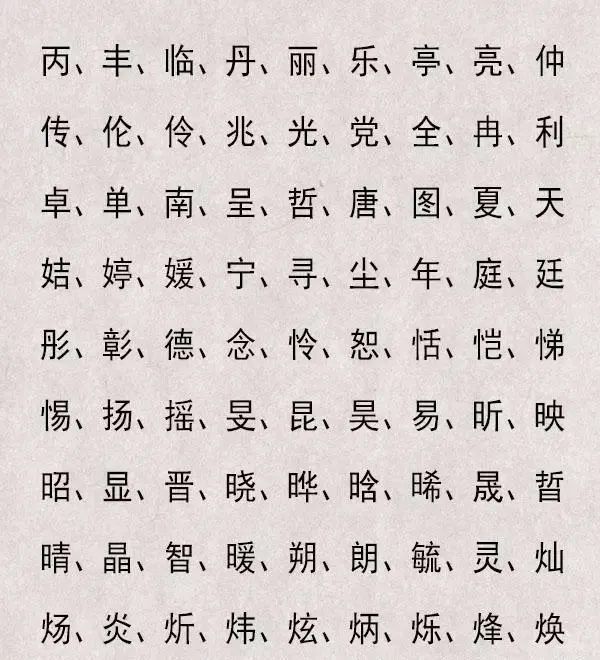 丙、丰、临、丹、丽、乐、亭、亮、仲
传、伦、伶、兆、光、党、全、冉、利
卓、单、南、呈、哲、唐、图、夏、天
姞、婷、媛、宁、寻、尘、年、庭、廷
彤、彰、德、念、怜、恕、恬、恺、悌
惕、扬、摇、旻、昆、昊、易、昕、映
昭、显、晋、晓、晔、晗、晞、晟、晢
晴、晶、智、暖、朔、朗、毓、灵、灿
炀、炎、炘、炜、炫、炳、烁、烽、焕